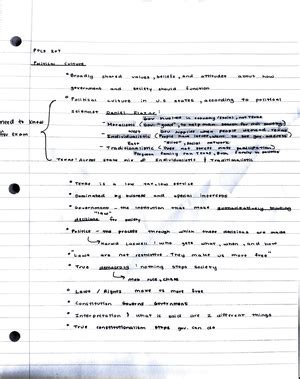 POLS 207
Political Culture
• Broadly shared values, beliefs, and attitudes about how
government and society should function
• Political culture in U.S. states, according to political
scientist Daniel Elazar:
need to know
for exam
• Moralistic (Gov "good",
• Individualistic
• Traditionalistic (Does not
• Texas: Direct state mix of Individualistic & Traditionalistic
• Texas is a low tax, low service
• Dominated by business and special interests
• Government = the institution that makes authoritatively binding
"law"
decisions for society
• Politics = the process through which these decisions are made
Harold Lasswell: who gets what, when, and how
• "Laws are not restrictive They make us more free"
• True democracy: nothing stops society
mob rule, chaos
• Laws / Rights make us more free
• Constitution governs government
• Interpretation & what is said are 2 different things
• True constitutionalism stops gov. can do